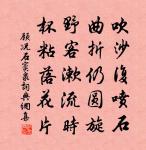 吹沙復噴石
曲折仍圓旋
野客漱流時
杯粘落花片
顧况石竇泉詞典網集